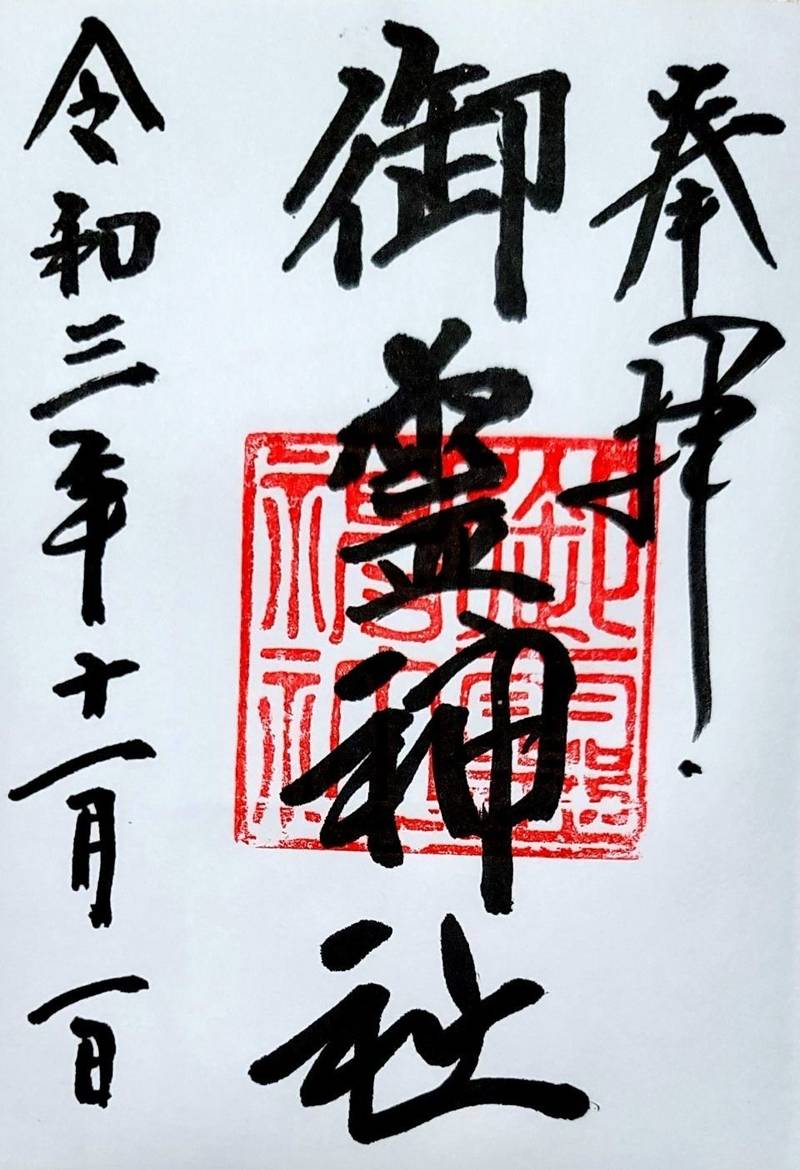 奉拝
御霊神社
令和三年十一月一日